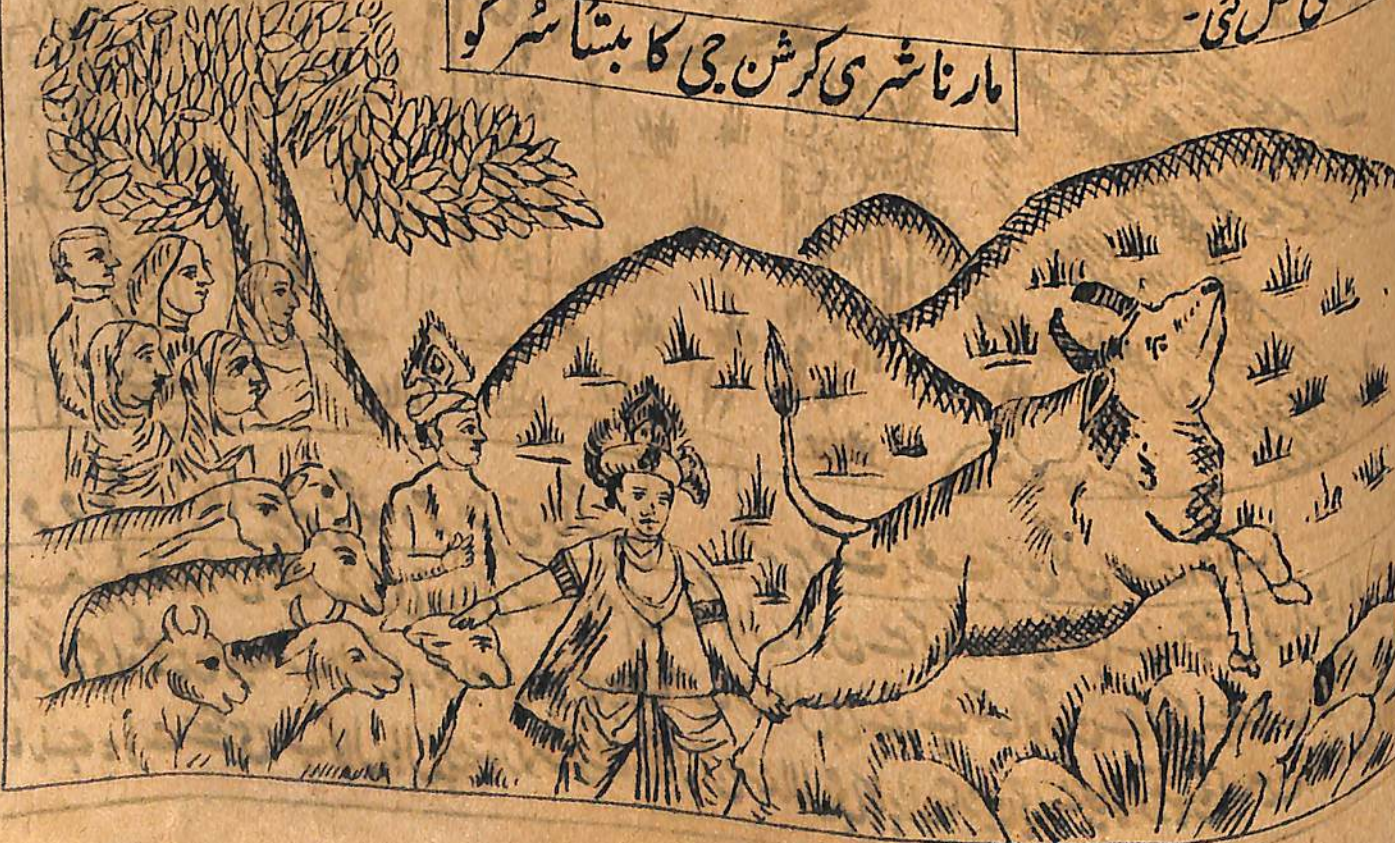 گئی۔
مارنا شری کرشن جی کا بتسا سُر کو